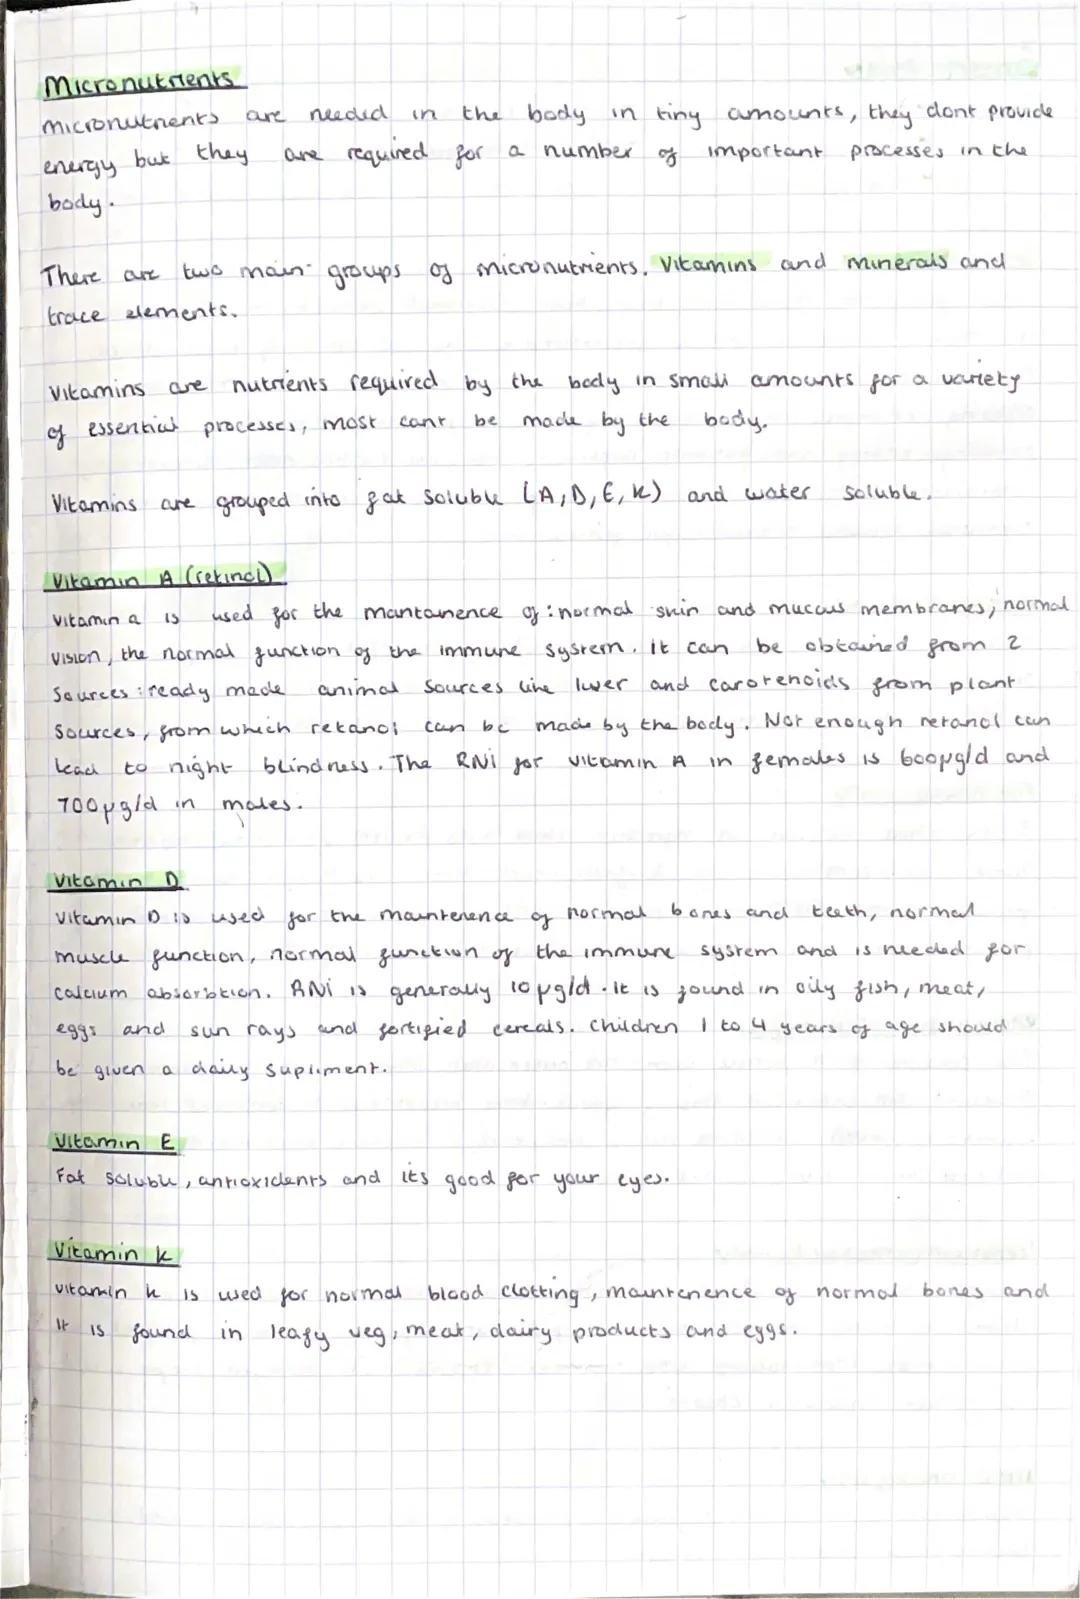 Micronutrients
micronutrients are needed in the body in tiny amounts, they dont provide
energy but they are required for a number of important processes in the
body.
There are two main groups of micronutrients. Vitamins and minerals and
trace elements.
Vitamins are nutrients required by the body in small amounts for a variety
of essential processes, most cant be made by the body.
Vitamins are grouped into fat soluble (A,D,E,K) and water soluble.
Vitamin A (retinol)
vitamin a is used for the mantanence of: normal skin and mucous membranes, normal
vision, the normal function of the immune system. it can be obtained from 2
sources: ready made animal sources like liver and carotenoids from plant
sources, from which retanol can be made by the body. Not enough retanol can
lead to night blindness. The RNI for vitamin A in females is 600µg/d and
700µg/d in males.
Vitamin D
vitamin D is used for the mauntenence of normal bones and teeth, normal
muscle function, normal function of the immune system and is needed for
calcium absorbtion. RNI is generally 10µg/d. It is found in oily fish, meat,
eggs and sun rays and fortified cereals. Children 1 to 4 years of age should
be given a daily supliment.
Vitamin E
Fat soluble, antioxidents and its good for your eyes.
Vitamin K
vitamin k is used for normal blood clotting, mauntenence of normal bones and
it is found in leafy veg, meat, dairy products and eggs.